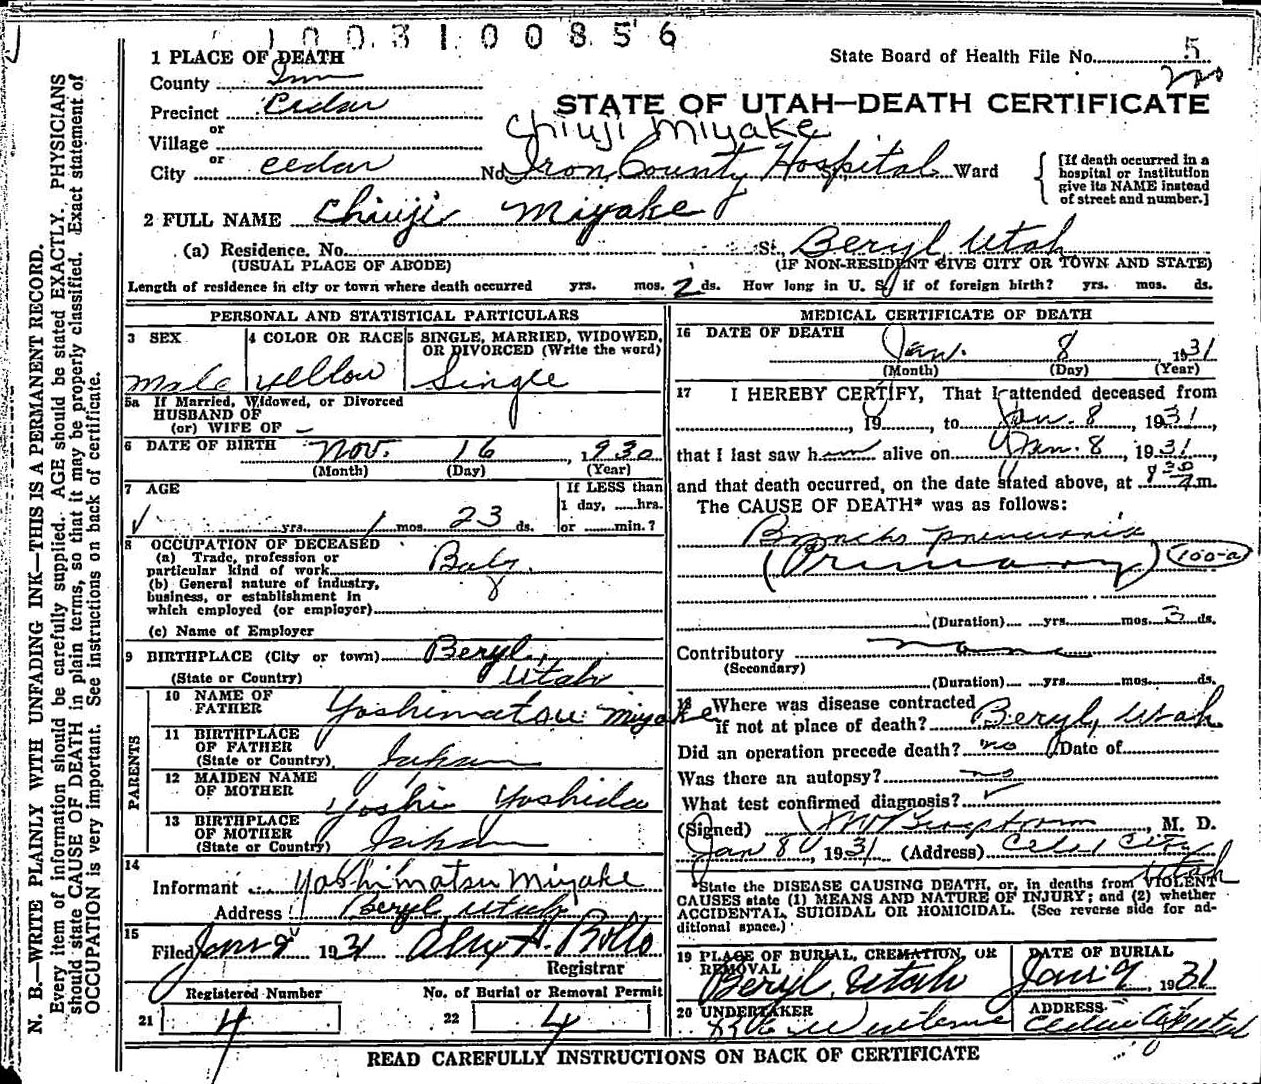 1003100856
1 PLACE OF DEATH
State Board of Health File No. 5
County Iron
Precinct Cedar
STATE OF UTAH—DEATH CERTIFICATE
or
Village
Chiuji Miyake
or
City Cedar No. Iron County Hospital Ward
[If death occurred in a
hospital or institution
give its NAME instead
of street and number.]
2 FULL NAME Chiuji Miyake
(a) Residence. No. St. Beryl Utah
(USUAL PLACE OF ABODE) (IF NON-RESIDENT GIVE CITY OR TOWN AND STATE)
Length of residence in city or town where death occurred yrs. mos. 2 ds. How long in U. S. if of foreign birth? yrs. mos. ds.
PERSONAL AND STATISTICAL PARTICULARS
3 SEX
Male
4 COLOR OR RACE
Yellow
5 SINGLE, MARRIED, WIDOWED,
OR DIVORCED (Write the word)
Single
5a If Married, Widowed, or Divorced
HUSBAND OF
(or) WIFE OF –
6 DATE OF BIRTH Nov. 16, 1930
(Month) (Day) (Year)
7 AGE
yrs. 1 mos. 23 ds.
If LESS than
1 day, ......hrs.
or ......min.?
8 OCCUPATION OF DECEASED
(a) Trade, profession or
particular kind of work Baby
(b) General nature of industry,
business, or establishment in
which employed (or employer)
(c) Name of Employer
9 BIRTHPLACE (City or town) Beryl,
(State or Country) Utah
PARENTS
10 NAME OF
FATHER Yoshimatsu Miyake
11 BIRTHPLACE
OF FATHER
(State or Country) Japan
12 MAIDEN NAME
OF MOTHER Yoshi Yoshida
13 BIRTHPLACE
OF MOTHER
(State or Country) Japan
14
Informant Yoshimatsu Miyake
Address Beryl, Utah
15
Filed Jan 8 1931
Registrar
Registered Number
21 4
No. of Burial or Removal Permit
22 4
MEDICAL CERTIFICATE OF DEATH
16 DATE OF DEATH
Jan. 8 1931
(Month) (Day) (Year)
17 I HEREBY CERTIFY, That I attended deceased from
, 19 , to Jan. 8, 1931,
that I last saw him alive on Jan. 8, 1931,
and that death occurred, on the date stated above, at 8 30 A m.
The CAUSE OF DEATH* was as follows:
Broncho pneumonia
(Primary) (100-a)
(Duration) yrs. mos. 3 ds.
Contributory none
(Secondary)
(Duration) yrs. mos. ds.
18 Where was disease contracted
if not at place of death? Beryl, Utah
Did an operation precede death? no Date of
Was there an autopsy? no
What test confirmed diagnosis?
(Signed) , M. D.
Jan 8, 1931 (Address) Cedar City
Utah
*State the DISEASE CAUSING DEATH, or, in deaths from VIOLENT
CAUSES state (1) MEANS AND NATURE OF INJURY; and (2) whether
ACCIDENTAL, SUICIDAL OR HOMICIDAL. (See reverse side for ad-
ditional space.)
19 PLACE OF BURIAL, CREMATION, OR
REMOVAL
Beryl, Utah
DATE OF BURIAL
Jan. 9 1931
20 UNDERTAKER
ADDRESS
READ CAREFULLY INSTRUCTIONS ON BACK OF CERTIFICATE
N. B.—WRITE PLAINLY WITH UNFADING INK—THIS IS A PERMANENT RECORD.
Every item of information should be carefully supplied. AGE should be stated EXACTLY. PHYSICIANS
should state CAUSE OF DEATH in plain terms, so that it may be properly classified. Exact statement of
OCCUPATION is very important. See instructions on back of certificate.